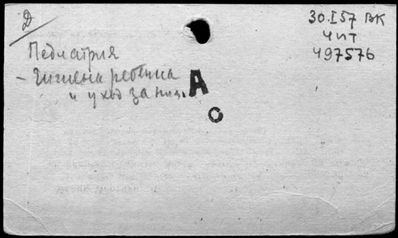 Д
30.I57 ВК
Чит
497576
Педиатрия
- Гигиена ребенка
и уход за ним.
А
о